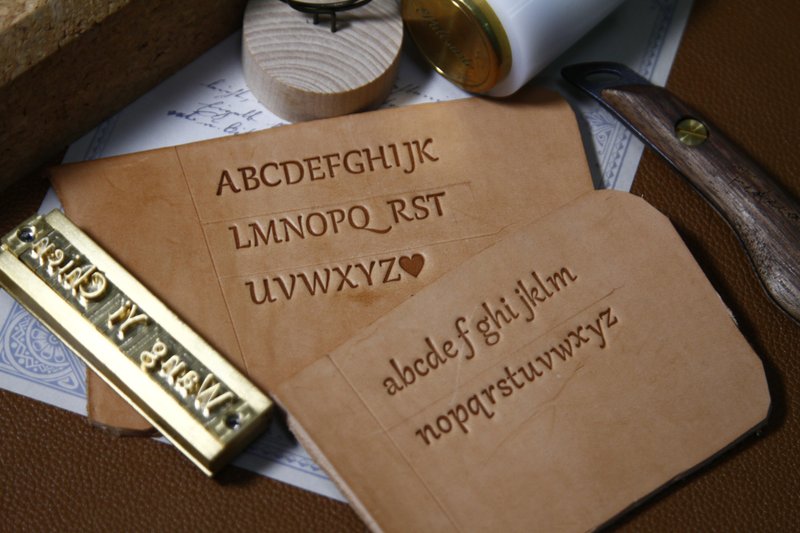 ABCDEFGHIJK
LMNOPQRST
UVWXYZ♥
abcdefghijklm
nopqrstuvwxyz
Wang Yi Chien